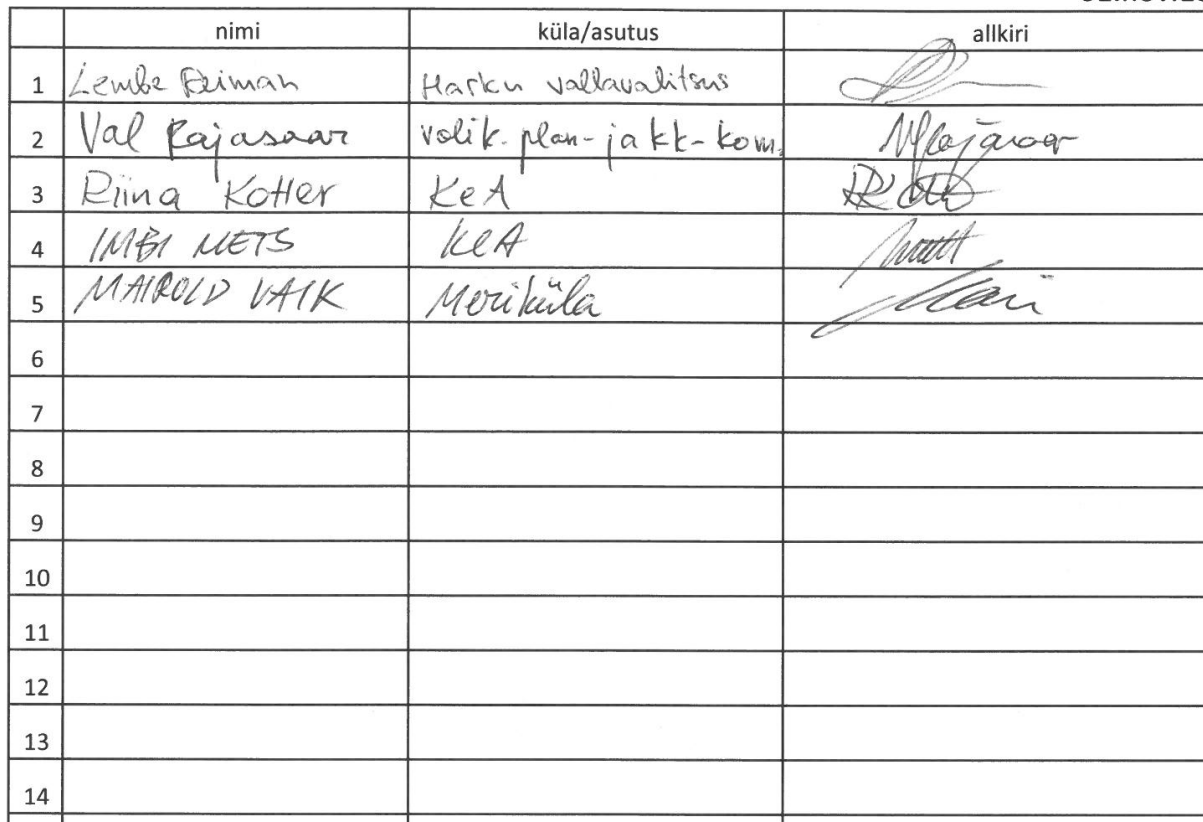 nimi küla/asutus allkiri
1 Lembe Reiman Harku vallavalitsus
2 Val Rajasaar volik. plan- ja kk-kom.
3 Riina Kotter KeA
4 IMBI METS KeA
5 MAIROLD VAIK Meriküla
6
7
8
9
10
11
12
13
14